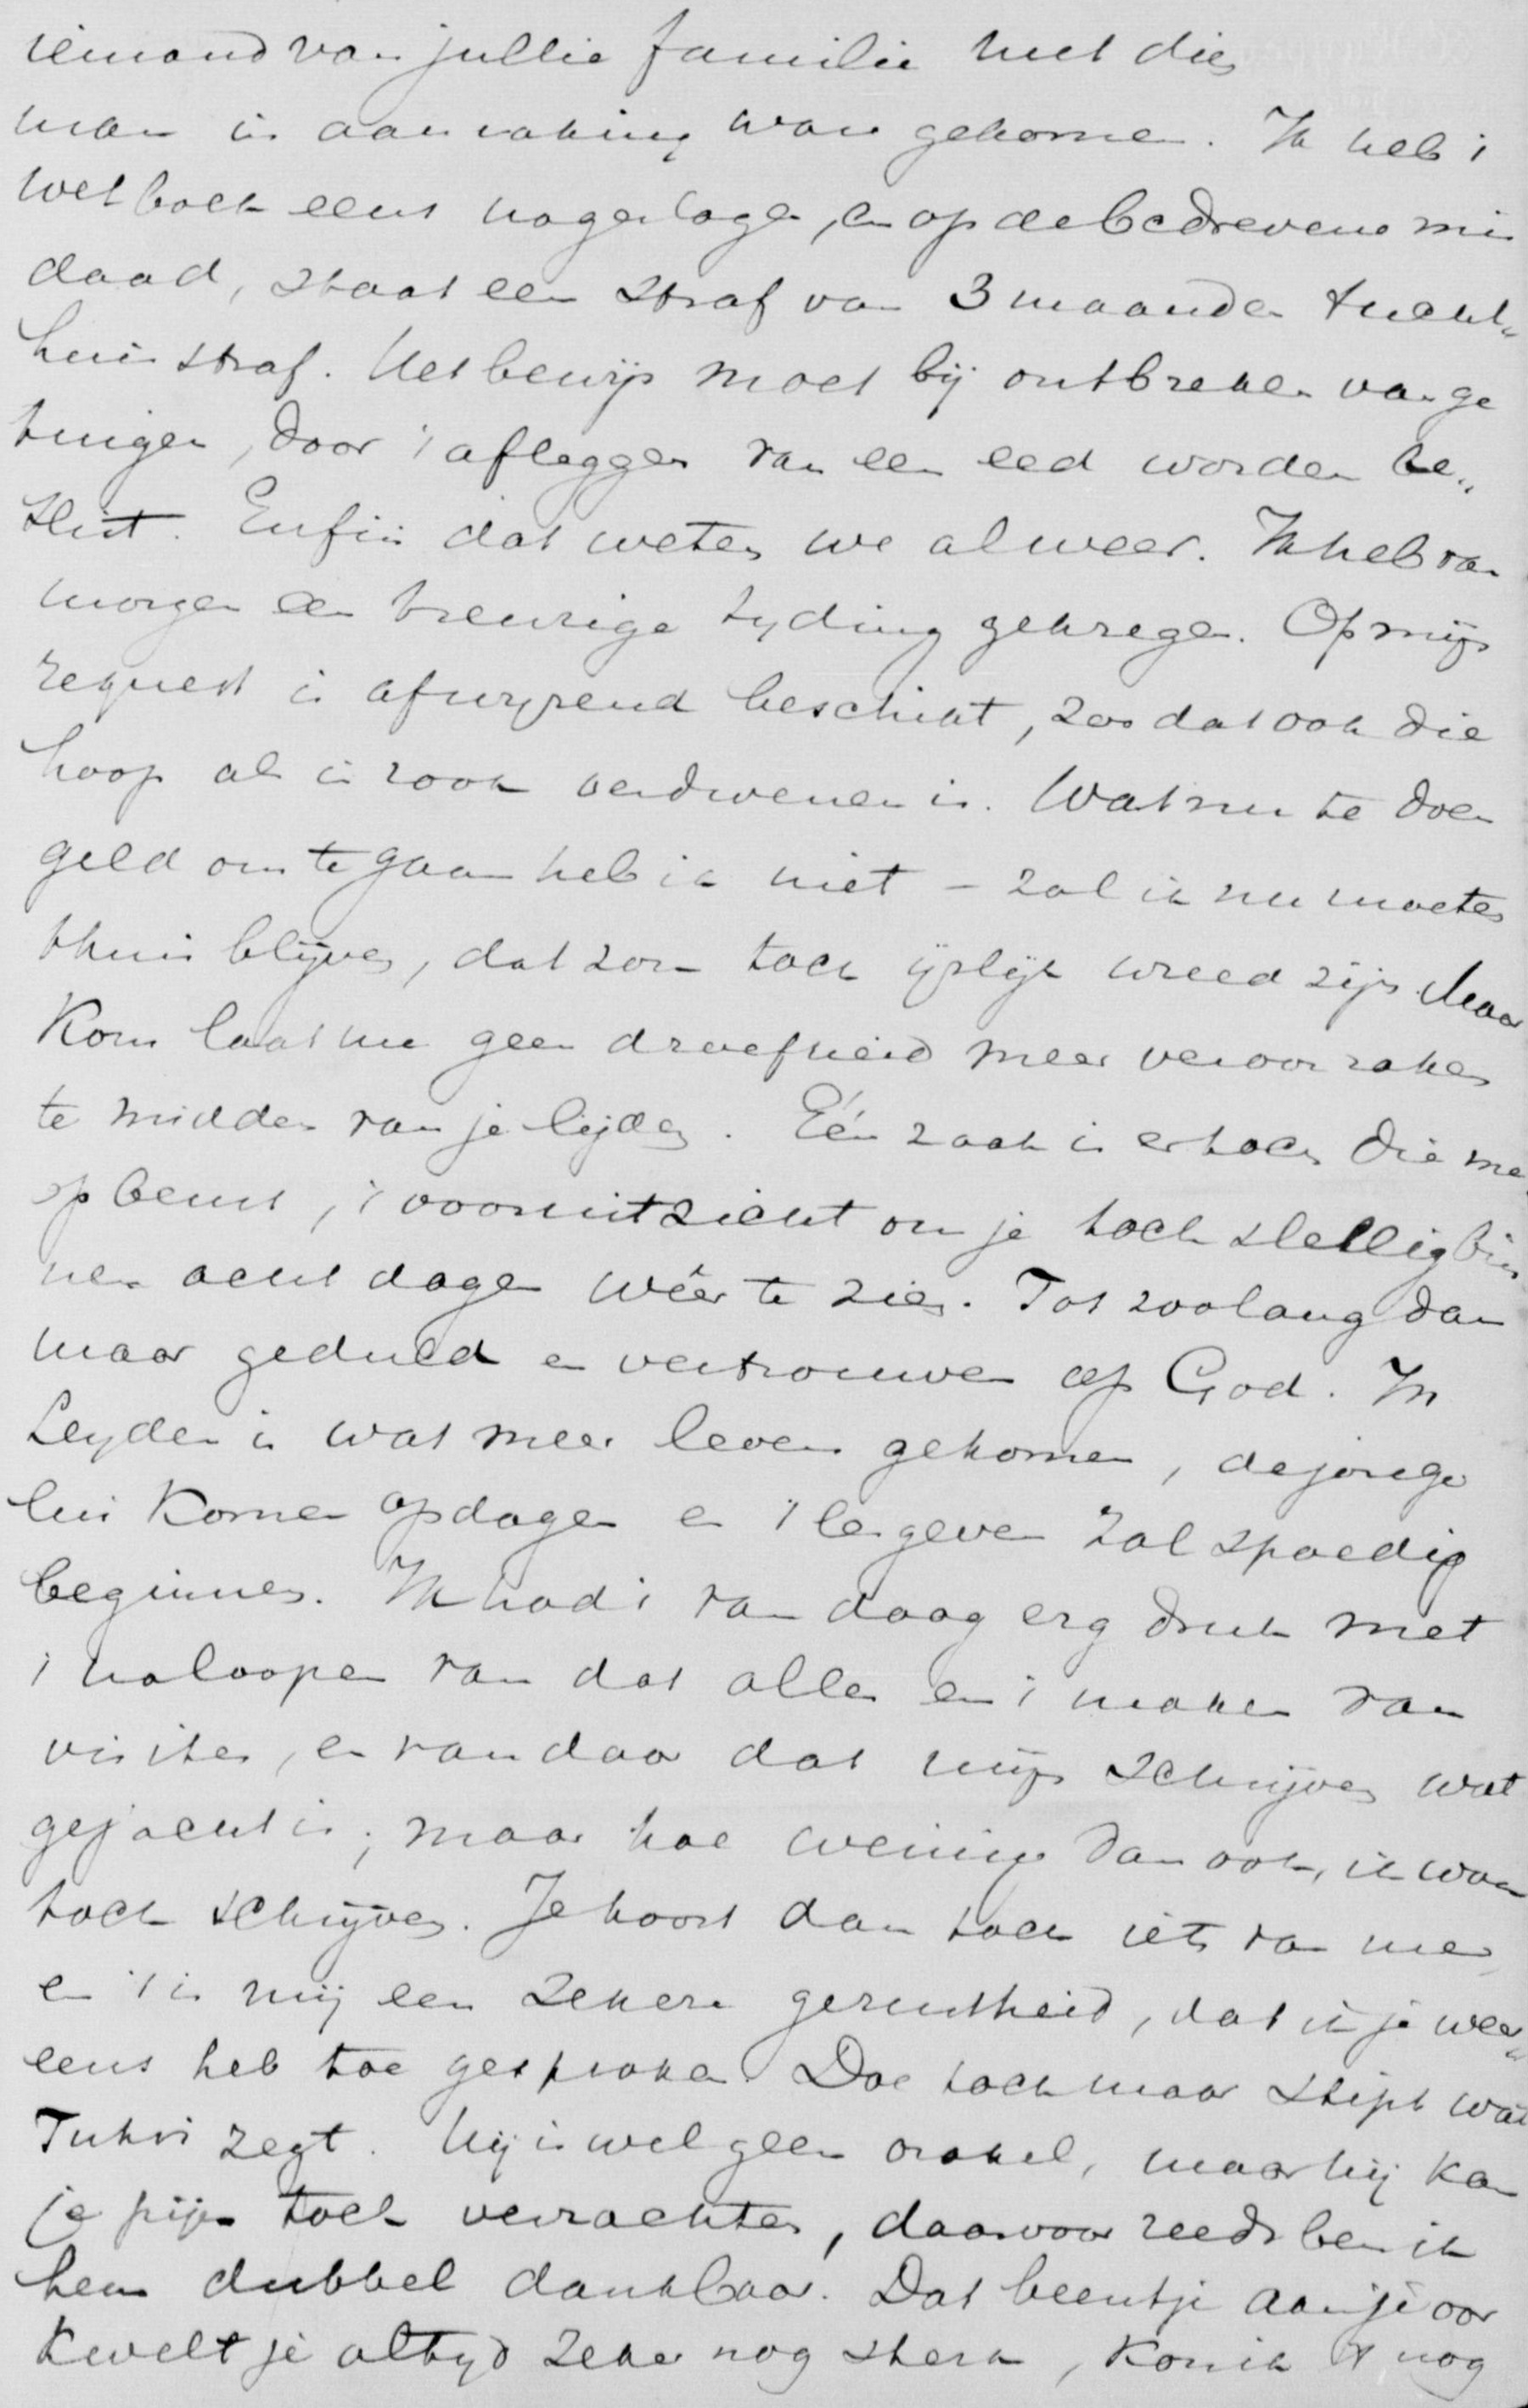 iemand van jullie familie met dien
man in aanraking ware gekomen. Ik heb 't
wetboek eens nageslagen, en op de bedreven mis
daad, staat een straf van 3 maanden tucht„
huisstraf. Het bewijs moet bij ontbreken van ge
tuigen, door 't afleggen van een eed worden be„
slist. Enfin dat weten we alweer. Ik heb van
morgen een treurige tyding gekregen. Op mijn
request is afwyzend beschikt, zoo dat ook die
hoop al in rook verdwenen is. Wat nu te doen
geld om te gaan heb ik niet – zal ik nu moeten
thuis blijven, dat zou toch ijslijk wreed zijn. Maar
Kom laat me geen droefheid meer veroorzaken
te midden van je lijden. Eén zaak is er toch die me
opbeurt, 't vooruitzicht om je toch stellig bin
nen acht dagen wéér te zien. Tot zoolang dan
maar geduld en vertrouwen op God. In
Leyden is wat meer leven gekomen, de jonge
lui komen opdagen en 't lesgeven zal spoedig
beginnen. Ik had 't van daag erg druk met
't naloopen van dat alles en 't maken van
visites, en van daar dat mijn schrijven wat
gejacht is; maar hoe weinig dan ook, ik wou
toch schrijven. Je hoort dan toch iets van me
en 't is mij een zekere gerustheid, dat ik je weer„
eens heb toe gesproken. Doe toch maar stipt wat
zegt. Hij is wel geen orakel, maar hij kan
je pijn toch verzachten, daarvoor reeds ben ik
hem dubbel dankbaar. Dat beentje aan je oor
kwelt je altyd zeker nog sterk, kon ik 't nog